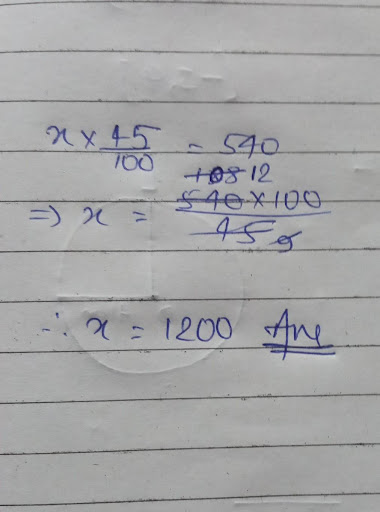 x × 45/100 = 540
108 12
⇒ x = 540 × 100 / 45 9
∴ x = 1200 Ans